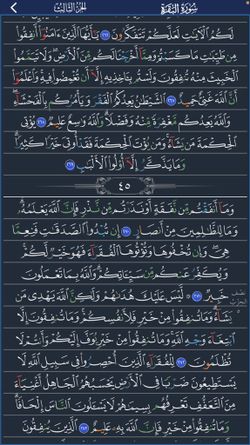 سُورَةُ البَقَرَةِ
الجزء الثالث
لَكُمُ ٱلْأٓيَٰتِ لَعَلَّكُمْ تَتَفَكَّرُونَ ٢٦٦ يَٰٓأَيُّهَا ٱلَّذِينَ ءَامَنُوٓا۟ أَنفِقُوا۟
مِن طَيِّبَٰتِ مَا كَسَبْتُمْ وَمِمَّآ أَخْرَجْنَا لَكُم مِّنَ ٱلْأَرْضِ وَلَا تَيَمَّمُوا۟
ٱلْخَبِيثَ مِنْهُ تُنفِقُونَ وَلَسْتُم بِـَٔاخِذِيهِ إِلَّآ أَن تُغْمِضُوا۟ فِيهِ وَٱعْلَمُوٓا۟
أَنَّ ٱللَّهَ غَنِىٌّ حَمِيدٌ ٢٦٧ ٱلشَّيْطَٰنُ يَعِدُكُمُ ٱلْفَقْرَ وَيَأْمُرُكُم بِٱلْفَحْشَآءِ
وَٱللَّهُ يَعِدُكُم مَّغْفِرَةً مِّنْهُ وَفَضْلًا وَٱللَّهُ وَٰسِعٌ عَلِيمٌ ٢٦٨ يُؤْتِى
ٱلْحِكْمَةَ مَن يَشَآءُ وَمَن يُؤْتَ ٱلْحِكْمَةَ فَقَدْ أُوتِىَ خَيْرًا كَثِيرًا
وَمَا يَذَّكَّرُ إِلَّآ أُو۟لُوا۟ ٱلْأَلْبَٰبِ ٢٦٩
٤٥
وَمَآ أَنفَقْتُم مِّن نَّفَقَةٍ أَوْ نَذَرْتُم مِّن نَّذْرٍ فَإِنَّ ٱللَّهَ يَعْلَمُهُۥ
وَمَا لِلظَّٰلِمِينَ مِنْ أَنصَارٍ ٢٧٠ إِن تُبْدُوا۟ ٱلصَّدَقَٰتِ فَنِعِمَّا
هِىَ وَإِن تُخْفُوهَا وَتُؤْتُوهَا ٱلْفُقَرَآءَ فَهُوَ خَيْرٌ لَّكُمْ
وَيُكَفِّرُ عَنكُم مِّن سَيِّـَٔاتِكُمْ وَٱللَّهُ بِمَا تَعْمَلُونَ
خَبِيرٌ ٢٧١ لَّيْسَ عَلَيْكَ هُدَىٰهُمْ وَلَٰكِنَّ ٱللَّهَ يَهْدِى مَن
يَشَآءُ وَمَا تُنفِقُوا۟ مِنْ خَيْرٍ فَلِأَنفُسِكُمْ وَمَا تُنفِقُونَ إِلَّا
ٱبْتِغَآءَ وَجْهِ ٱللَّهِ وَمَا تُنفِقُوا۟ مِنْ خَيْرٍ يُوَفَّ إِلَيْكُمْ وَأَنتُمْ لَا
تُظْلَمُونَ ٢٧٢ لِلْفُقَرَآءِ ٱلَّذِينَ أُحْصِرُوا۟ فِى سَبِيلِ ٱللَّهِ لَا
يَسْتَطِيعُونَ ضَرْبًا فِى ٱلْأَرْضِ يَحْسَبُهُمُ ٱلْجَاهِلُ أَغْنِيَآءَ
مِنَ ٱلتَّعَفُّفِ تَعْرِفُهُم بِسِيمَٰهُمْ لَا يَسْـَٔلُونَ ٱلنَّاسَ إِلْحَافًا
وَمَا تُنفِقُوا۟ مِنْ خَيْرٍ فَإِنَّ ٱللَّهَ بِهِۦ عَلِيمٌ ٢٧٣ ٱلَّذِينَ يُنفِقُونَ